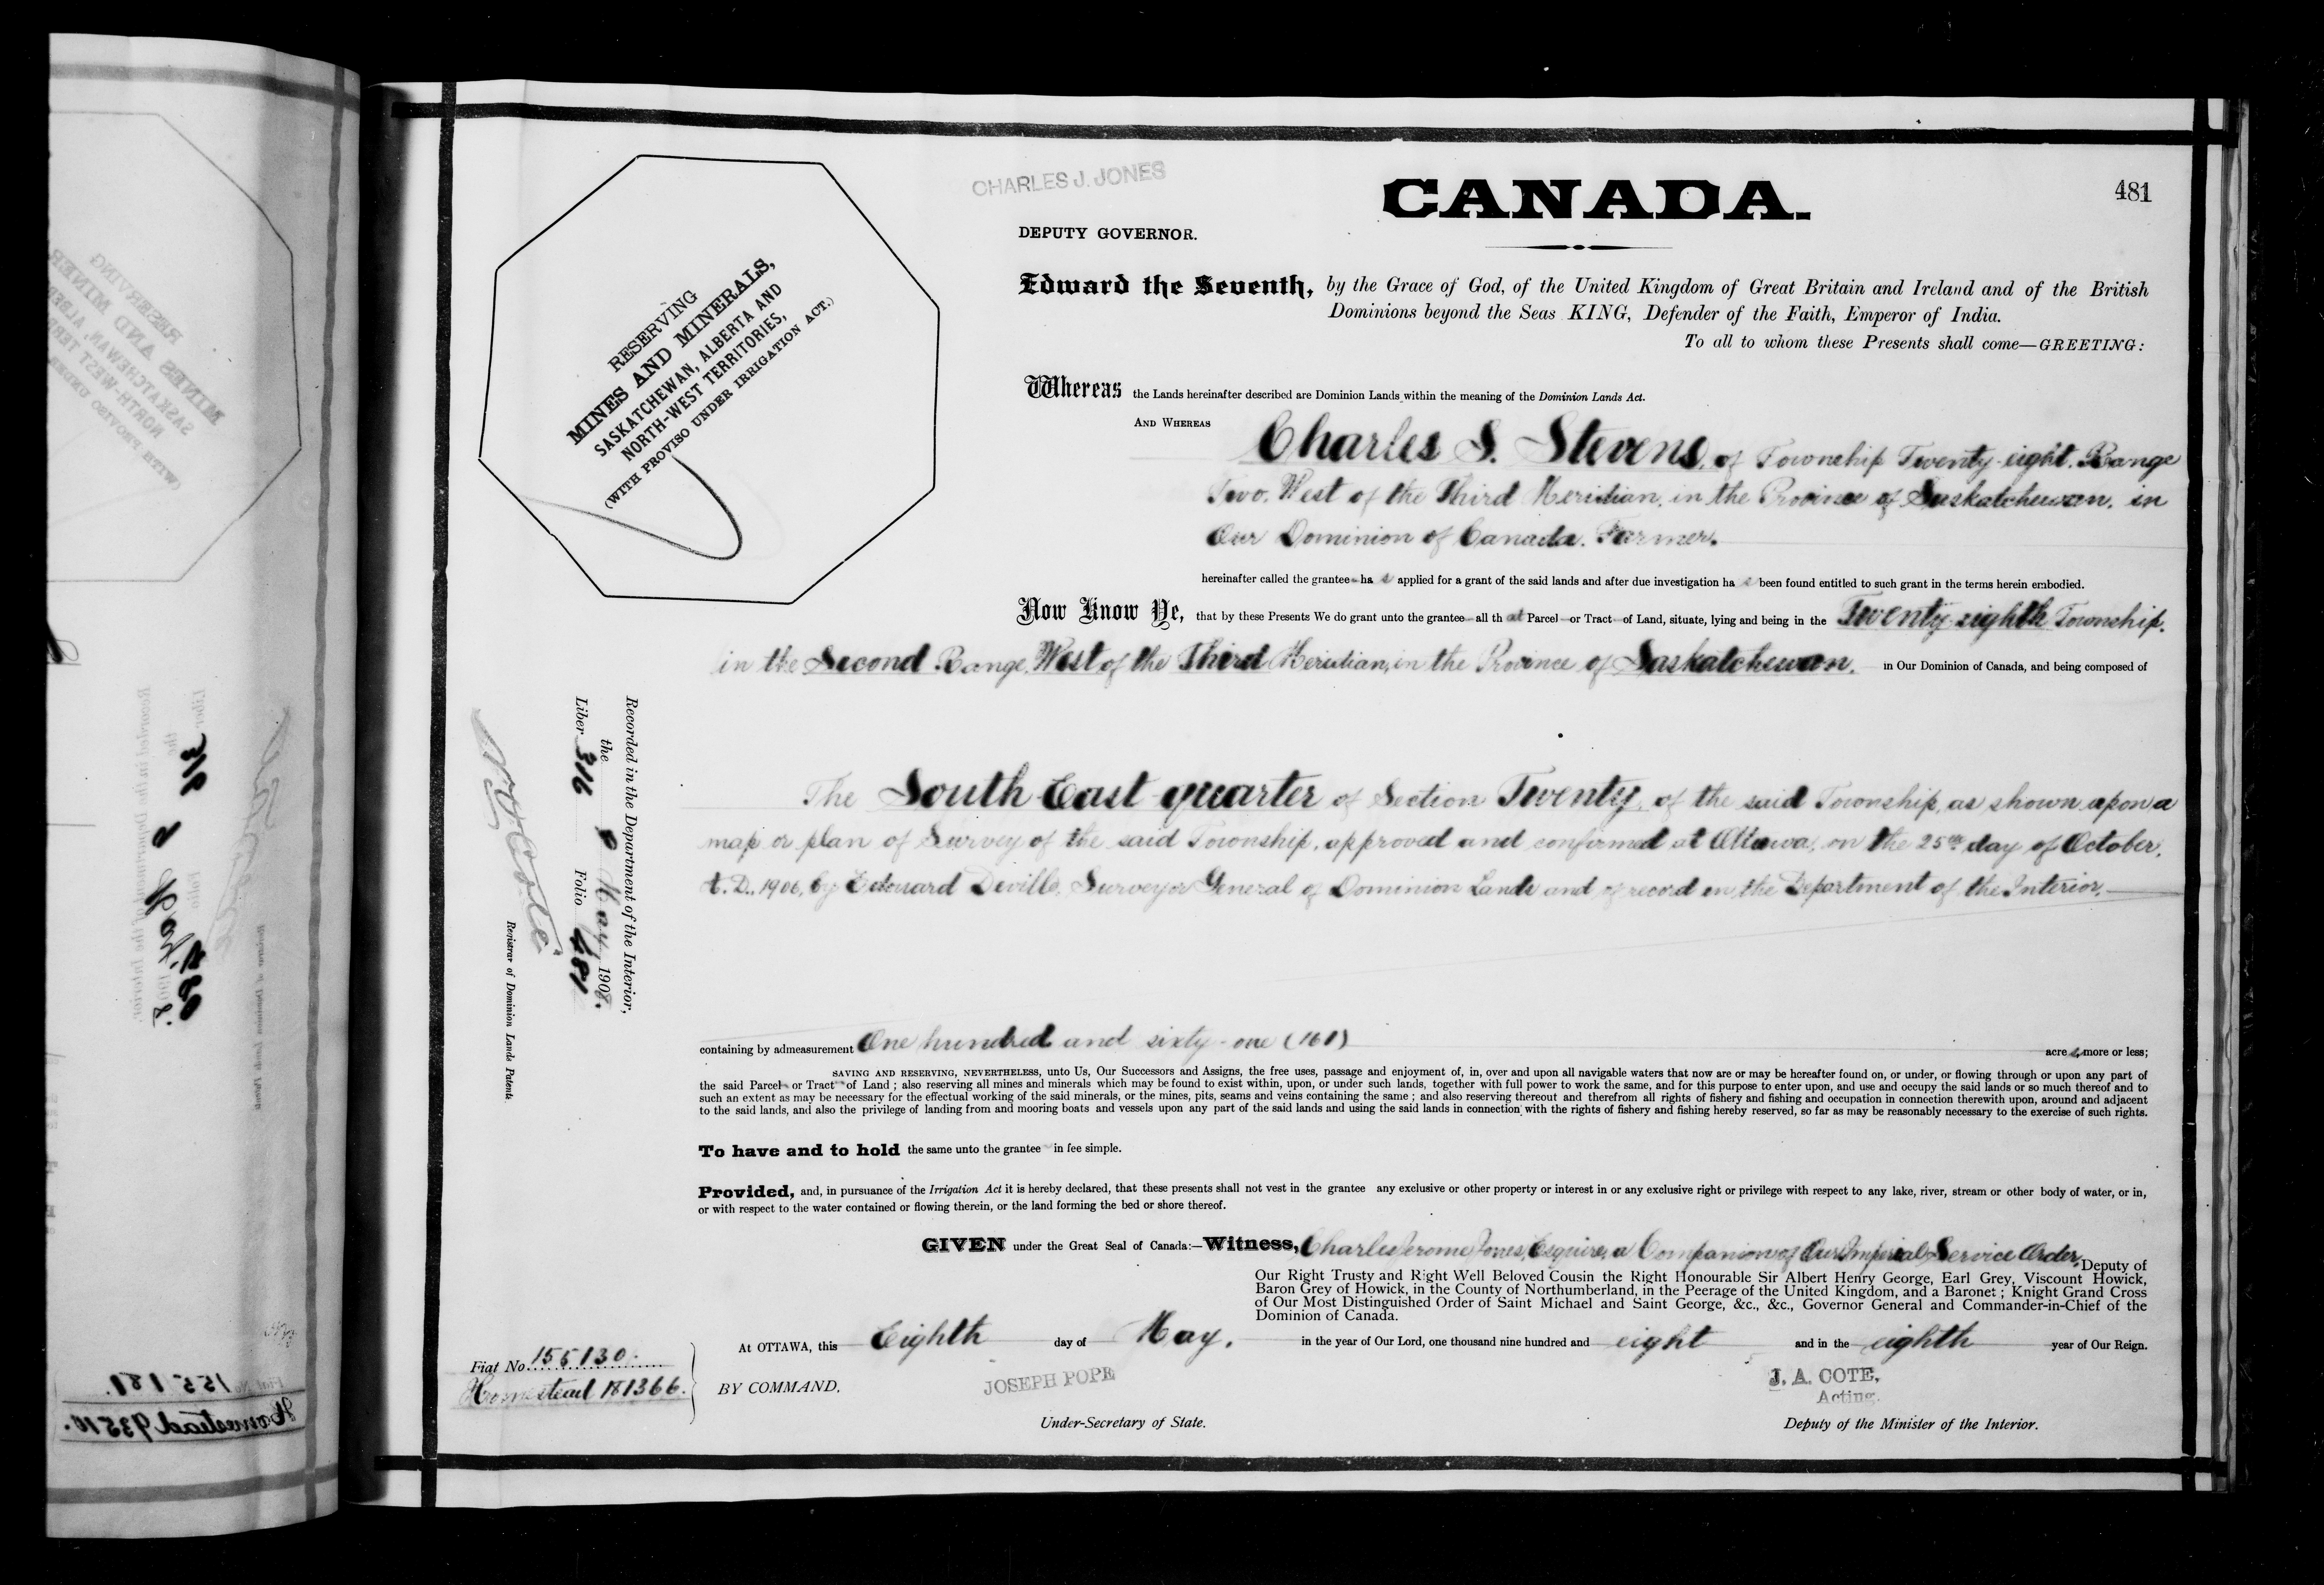 CHARLES J. JONES
CANADA.
481
DEPUTY GOVERNOR.
Edward the Seventh, by the Grace of God, of the United Kingdom of Great Britain and Ireland and of the British
Dominions beyond the Seas KING, Defender of the Faith, Emperor of India.
To all to whom these Presents shall come—GREETING:
RESERVING
MINES AND MINERALS,
SASKATCHEWAN, ALBERTA AND
NORTH-WEST TERRITORIES,
(WITH PROVISO UNDER IRRIGATION ACT.)
Whereas the Lands hereinafter described are Dominion Lands within the meaning of the Dominion Lands Act.
AND WHEREAS
Charles S. Stevens, of Township Twenty-eight, Range
Two, West of the Third Meridian, in the Province of Saskatchewan, in
Our Dominion of Canada. Farmer.
hereinafter called the grantee has applied for a grant of the said lands and after due investigation has been found entitled to such grant in the terms herein embodied.
Now Know Ye, that by these Presents We do grant unto the grantee all that Parcel or Tract of Land, situate, lying and being in the Twenty-eighth Township,
in the Second Range, West of the Third Meridian, in the Province of Saskatchewan, in Our Dominion of Canada, and being composed of
The South East quarter of Section Twenty, of the said Township, as shown upon a
map or plan of Survey of the said Township, approved and confirmed at Ottawa, on the 25th day of October,
A.D., 1906, by Edouard Deville, Surveyor General of Dominion Lands and of record in the Department of the Interior.
Recorded in the Department of the Interior,
the 8 May 1908.
Liber 316 Folio 481
Registrar of Dominion Lands Patents
containing by admeasurement One hundred and sixty-one (161) acres, more or less;
SAVING AND RESERVING, NEVERTHELESS, unto Us, Our Successors and Assigns, the free uses, passage and enjoyment of, in, over and upon all navigable waters that now are or may be hereafter found on, or under, or flowing through or upon any part of
the said Parcel or Tract of Land; also reserving all mines and minerals which may be found to exist within, upon, or under such lands, together with full power to work the same, and for this purpose to enter upon, and use and occupy the said lands or so much thereof and to
such an extent as may be necessary for the effectual working of the said minerals, or the mines, pits, seams and veins containing the same; and also reserving thereout and therefrom all rights of fishery and fishing and occupation in connection therewith upon, around and adjacent
to the said lands, and also the privilege of landing from and mooring boats and vessels upon any part of the said lands and using the said lands in connection with the rights of fishery and fishing hereby reserved, so far as may be reasonably necessary to the exercise of such rights.
To have and to hold the same unto the grantee in fee simple.
Provided, and, in pursuance of the Irrigation Act it is hereby declared, that these presents shall not vest in the grantee any exclusive or other property or interest in or any exclusive right or privilege with respect to any lake, river, stream or other body of water, or in,
or with respect to the water contained or flowing therein, or the land forming the bed or shore thereof.
GIVEN under the Great Seal of Canada:—Witness, Charles Jerome Jones, Esquire, a Companion of Our Imperial Service Order, Deputy of
Our Right Trusty and Right Well Beloved Cousin the Right Honourable Sir Albert Henry George, Earl Grey, Viscount Howick,
Baron Grey of Howick, in the County of Northumberland, in the Peerage of the United Kingdom, and a Baronet; Knight Grand Cross
of Our Most Distinguished Order of Saint Michael and Saint George, &c., &c., Governor General and Commander-in-Chief of the
Dominion of Canada.
At OTTAWA, this Eighth day of May, in the year of Our Lord, one thousand nine hundred and eight and in the eighth year of Our Reign.
Fiat No. 155130.
Homestead 181366.
BY COMMAND,
JOSEPH POPE
Under-Secretary of State.
J. A. COTE,
Acting.
Deputy of the Minister of the Interior.